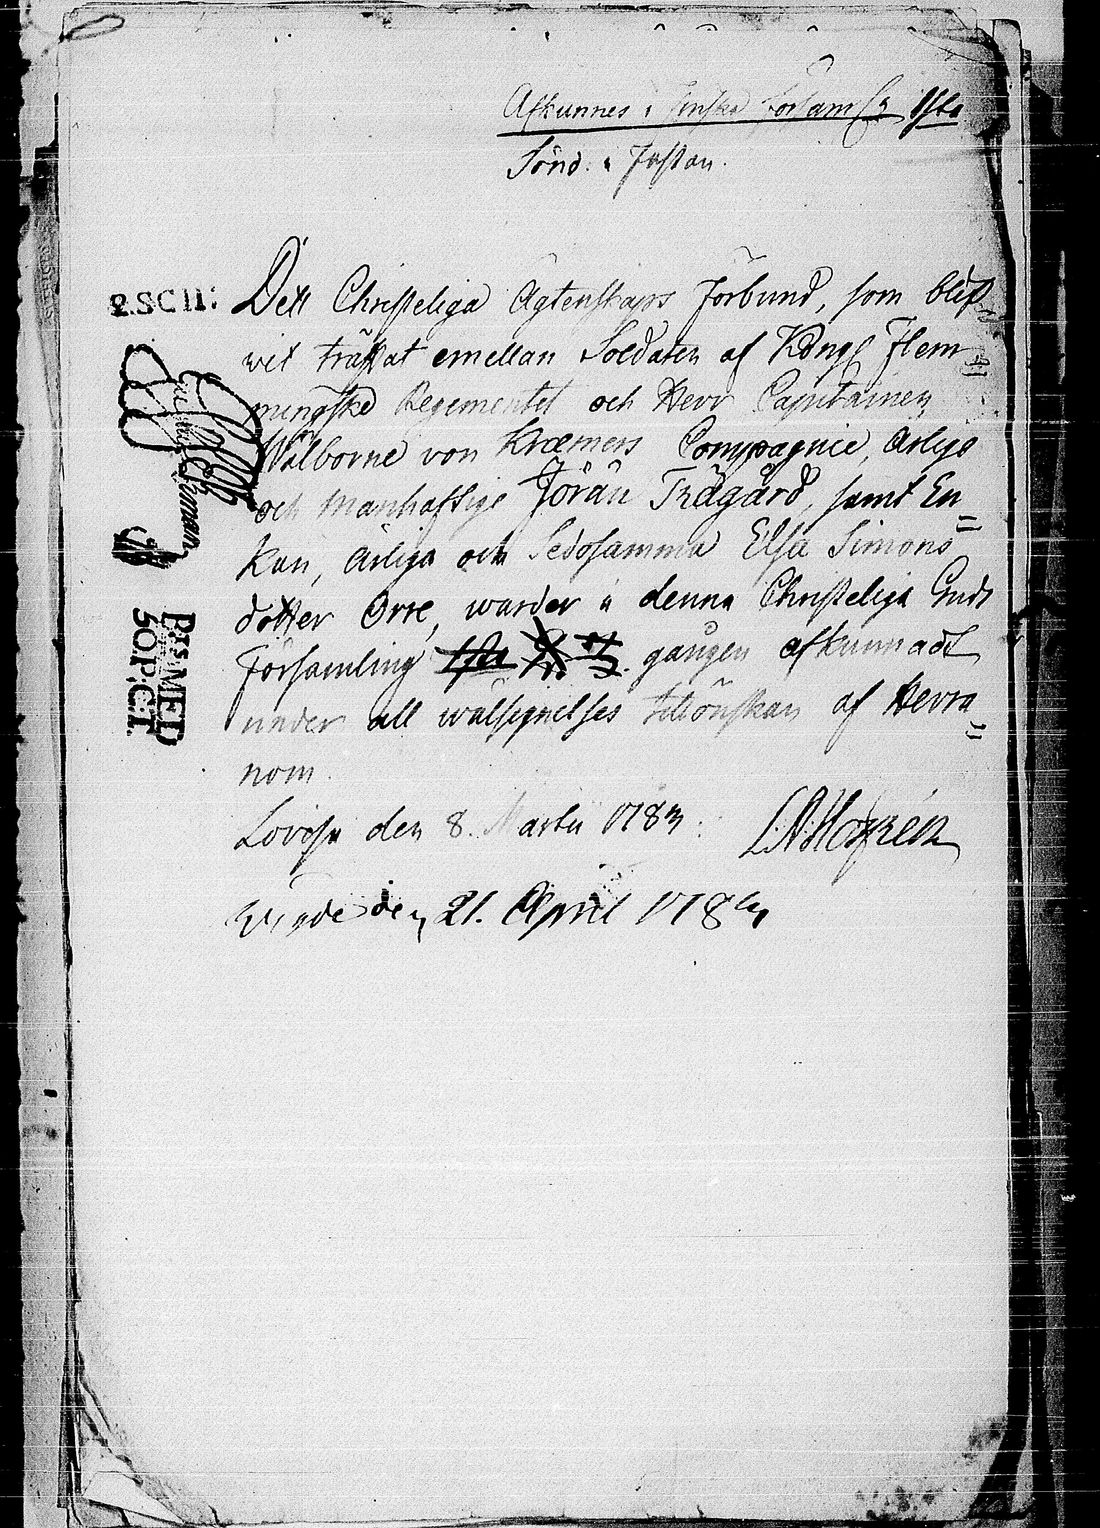 Afkunnes i finska församl 1sta
Sönd: i Fastan.
Dett Christeliga Ägtenskaps Förbund, som blif-
vit träffat emellan Soldaten af Kongl Flem-
mingske Regementet och Herr Capitainen
Wälborne von Kræmers Compagnie, ärlige
och manhaftige Jöran Trägård, samt En=
kan, ärliga och Sedosamma Elsa Simons
dotter Orre, warder i denna Christeliga Guds
Församling 1sta 2 3 gången afkunnadt
under all wälsignelses tillönskan af Herra=
nom.
Lovisa den 8. Martii 1783.
wigde den 21. April 1783
P:SCH:
Rs:MED
50.P:CT.